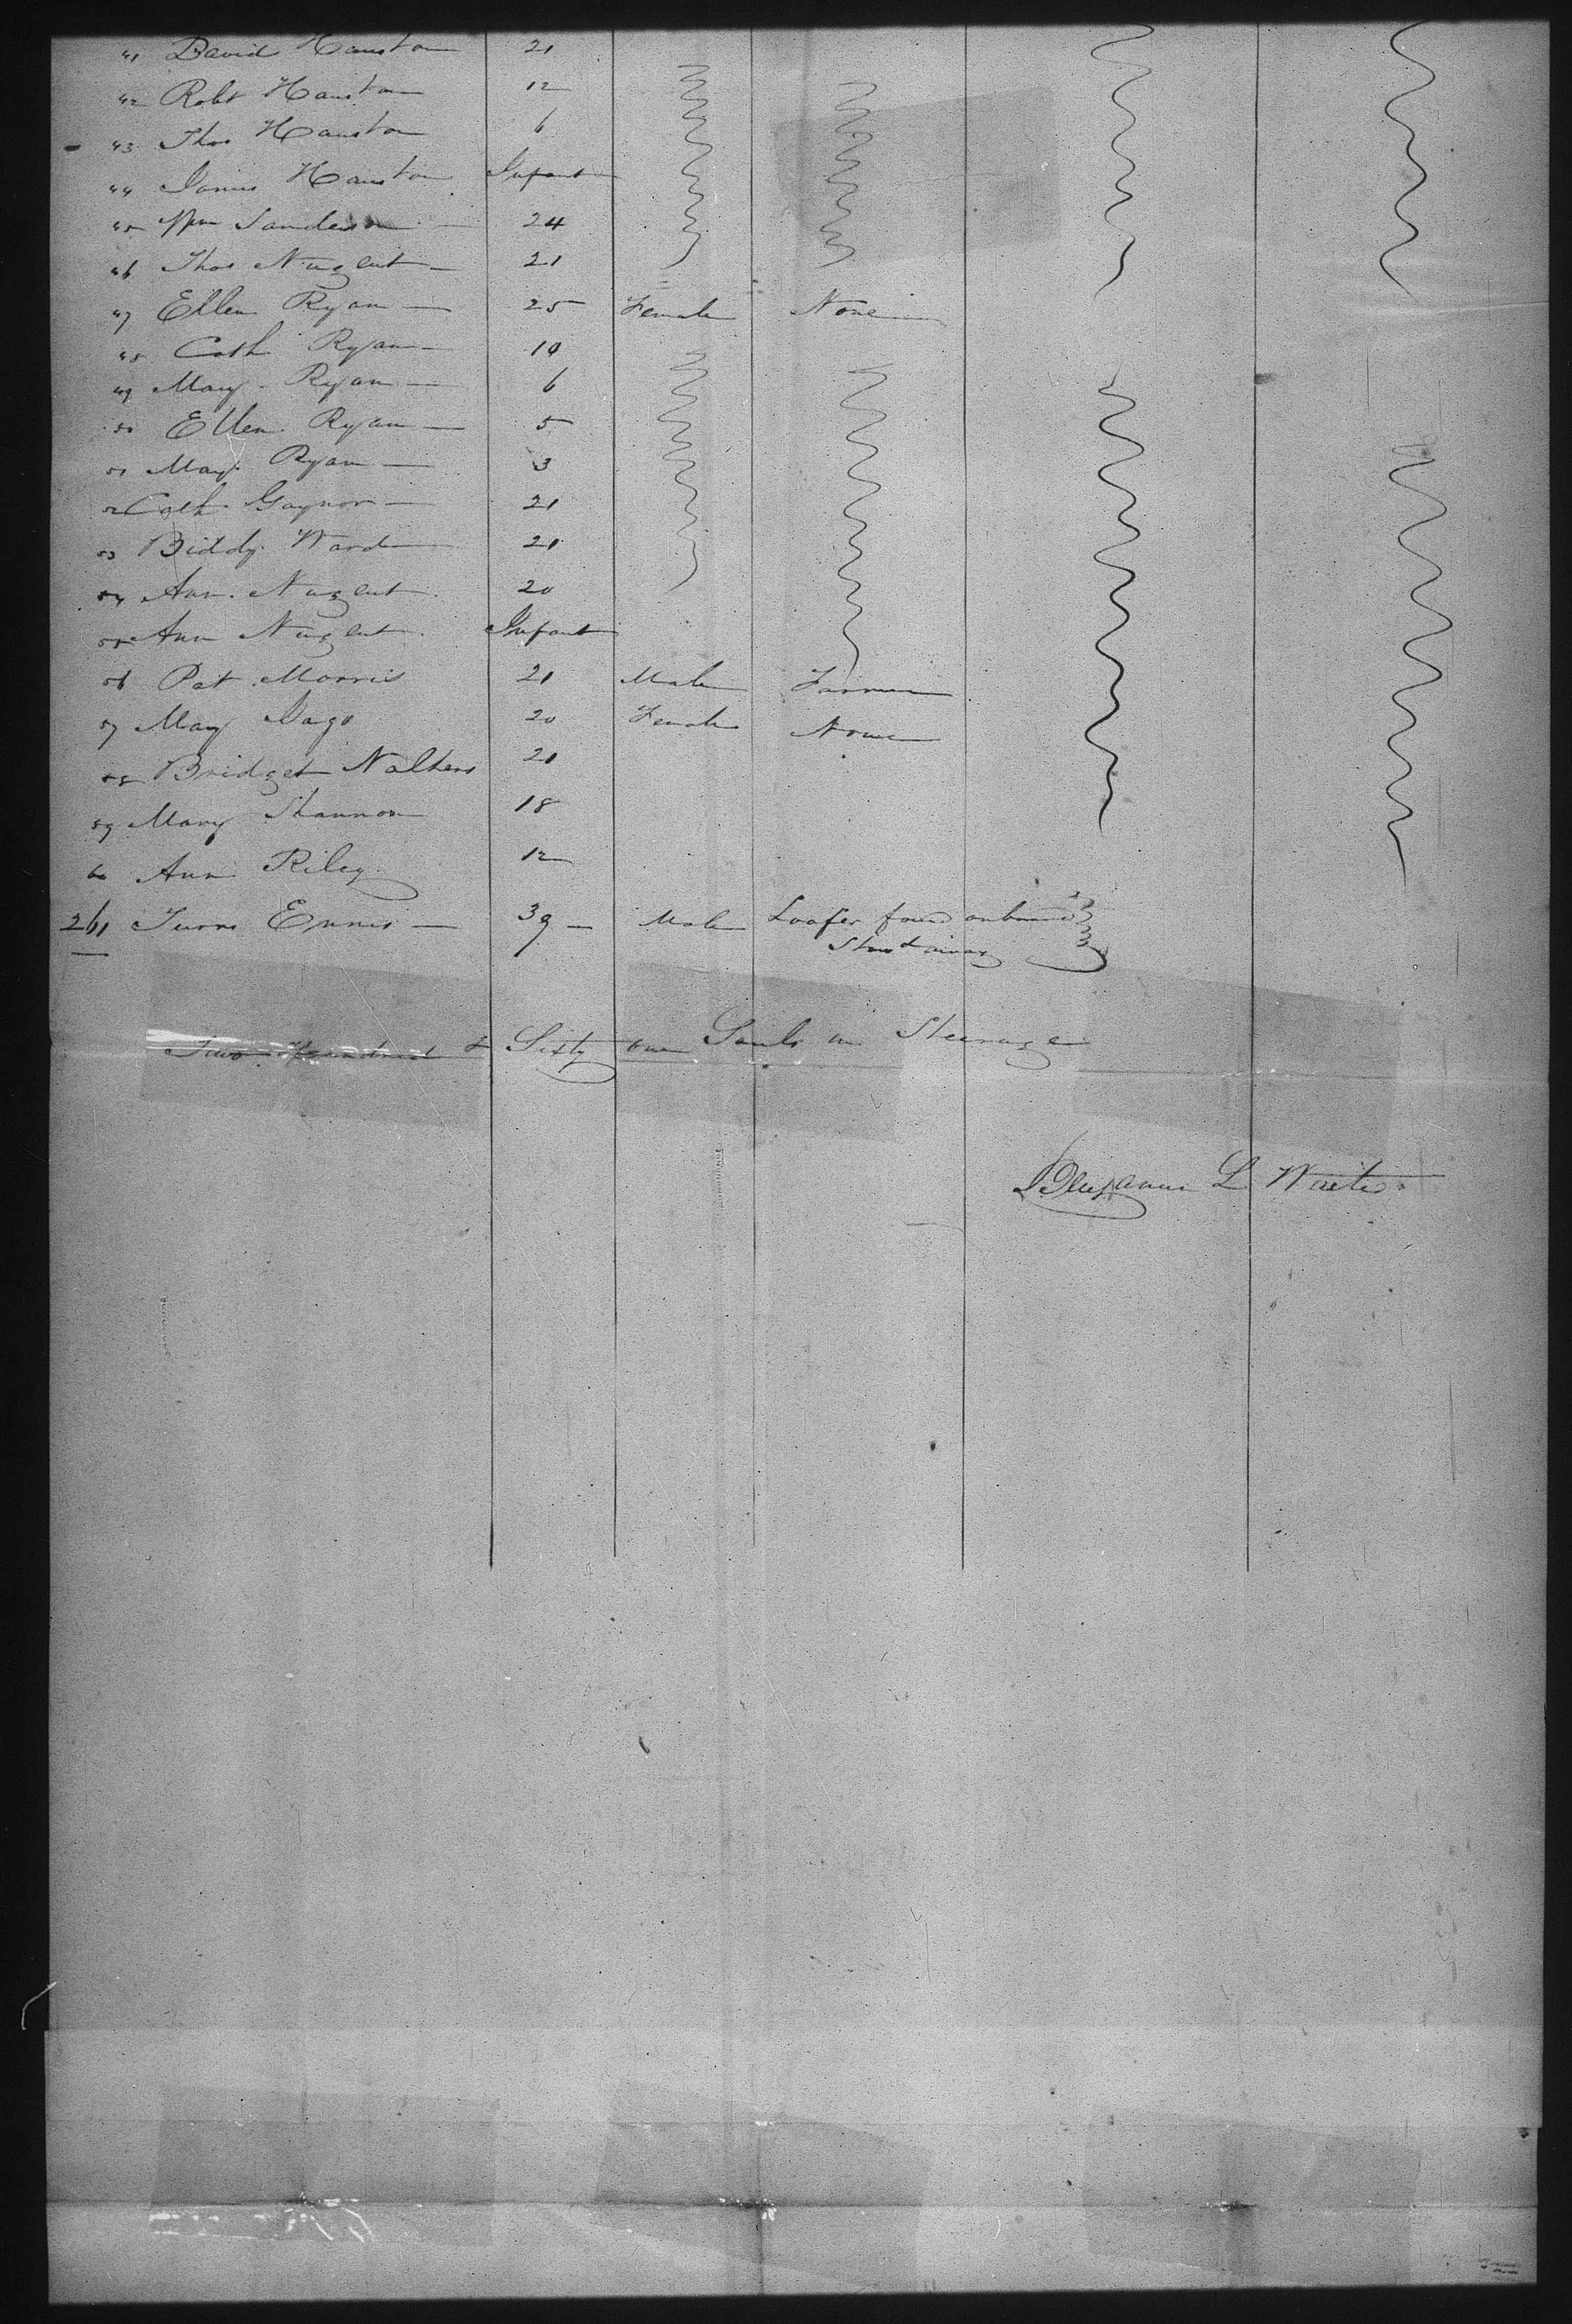 41 David Hauston 21
42 Robt Hauston 12
43 Thos Hauston 6
44 James Hauston Infant
45 Wm Sanderson 24
46 Thos Nugent 21
47 Ellen Ryan 25 Female None
48 Cath Ryan 10
49 Mary Ryan 6
50 Ellen Ryan 5
51 Mary Ryan 3
52 Cath Gaynor 21
53 Biddy Ward 21
54 Ann Nugent 20
55 Ann Nugent Infant
56 Pat Morris 21 Male Farmer
57 Mary 20 Female None
58 Bridget 21
59 Mary Shannon 18
60 Ann Riley 12
261 Ennis 39 Male Loafer found onboard
Stowd away
Two Hundred & Sixty one Souls in Steerage
L Waite